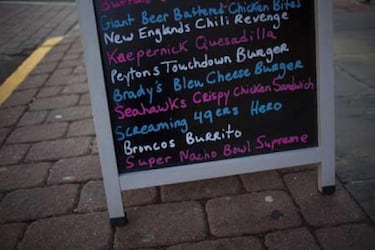 Giant Beer Battered Chicken Bites
New Englands Chili Revenge
Kaepernick Quesadilla
Peytons Touchdown Burger
Brady's Bleu Cheese Burger
Seahawks Crispy Chicken Sandwich
Screaming 49ers Hero
Broncos Burrito
Super Nacho Bowl Supreme